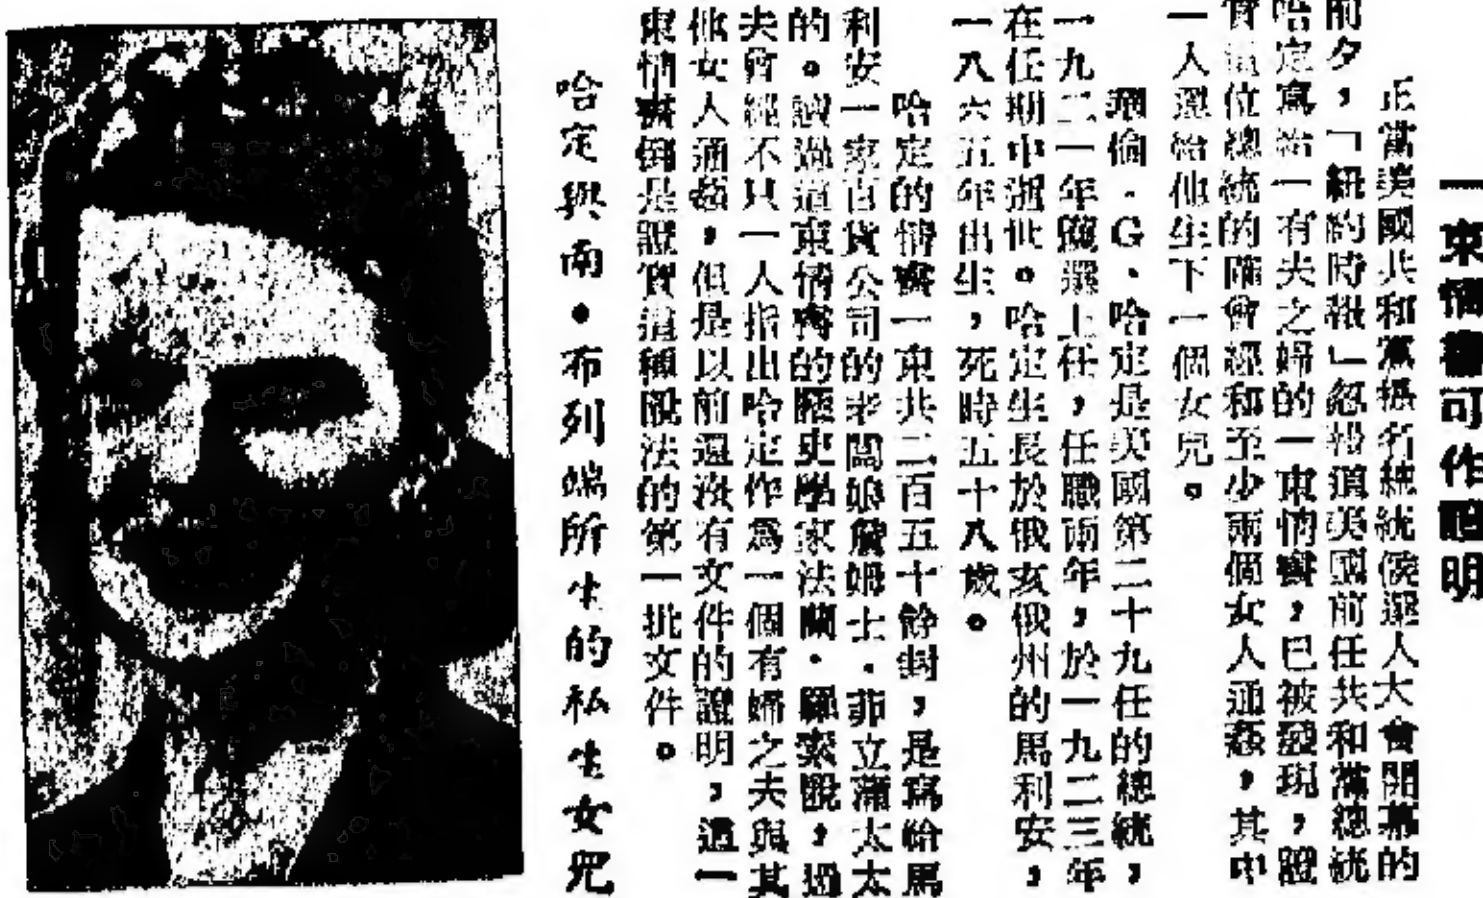 一束情書可作證明
正當美國共和黨提名總統候選人大會開幕的
前夕，「紐約時報」忽報道美國前任共和黨總統
哈定寫給一有夫之婦的一束情書，已被發現，證
實這位總統的確曾經和至少兩個女人通姦，其中
一人還給他生下一個女兒。
瑪倫．G．哈定是美國第二十九任的總統，
一九二一年獲選上任，任職兩年，於一九二三年
在任期中逝世。哈定生長於俄亥俄州的馬利安，
一八六五年出生，死時五十八歲。
哈定的情書一束共二百五十餘封，是寫給馬
利安一家百貨公司的老闆娘詹姆士．菲立瀟太太
的。讀過這束情書的歷史學家法蘭．羅素說，過
去曾經不只一人指出哈定作為一個有婦之夫與其
他女人通姦，但是以前還沒有文件的證明，這一
束情書倒是證實這種說法的第一批文件。
哈定與南•布列端所生的私生女兒